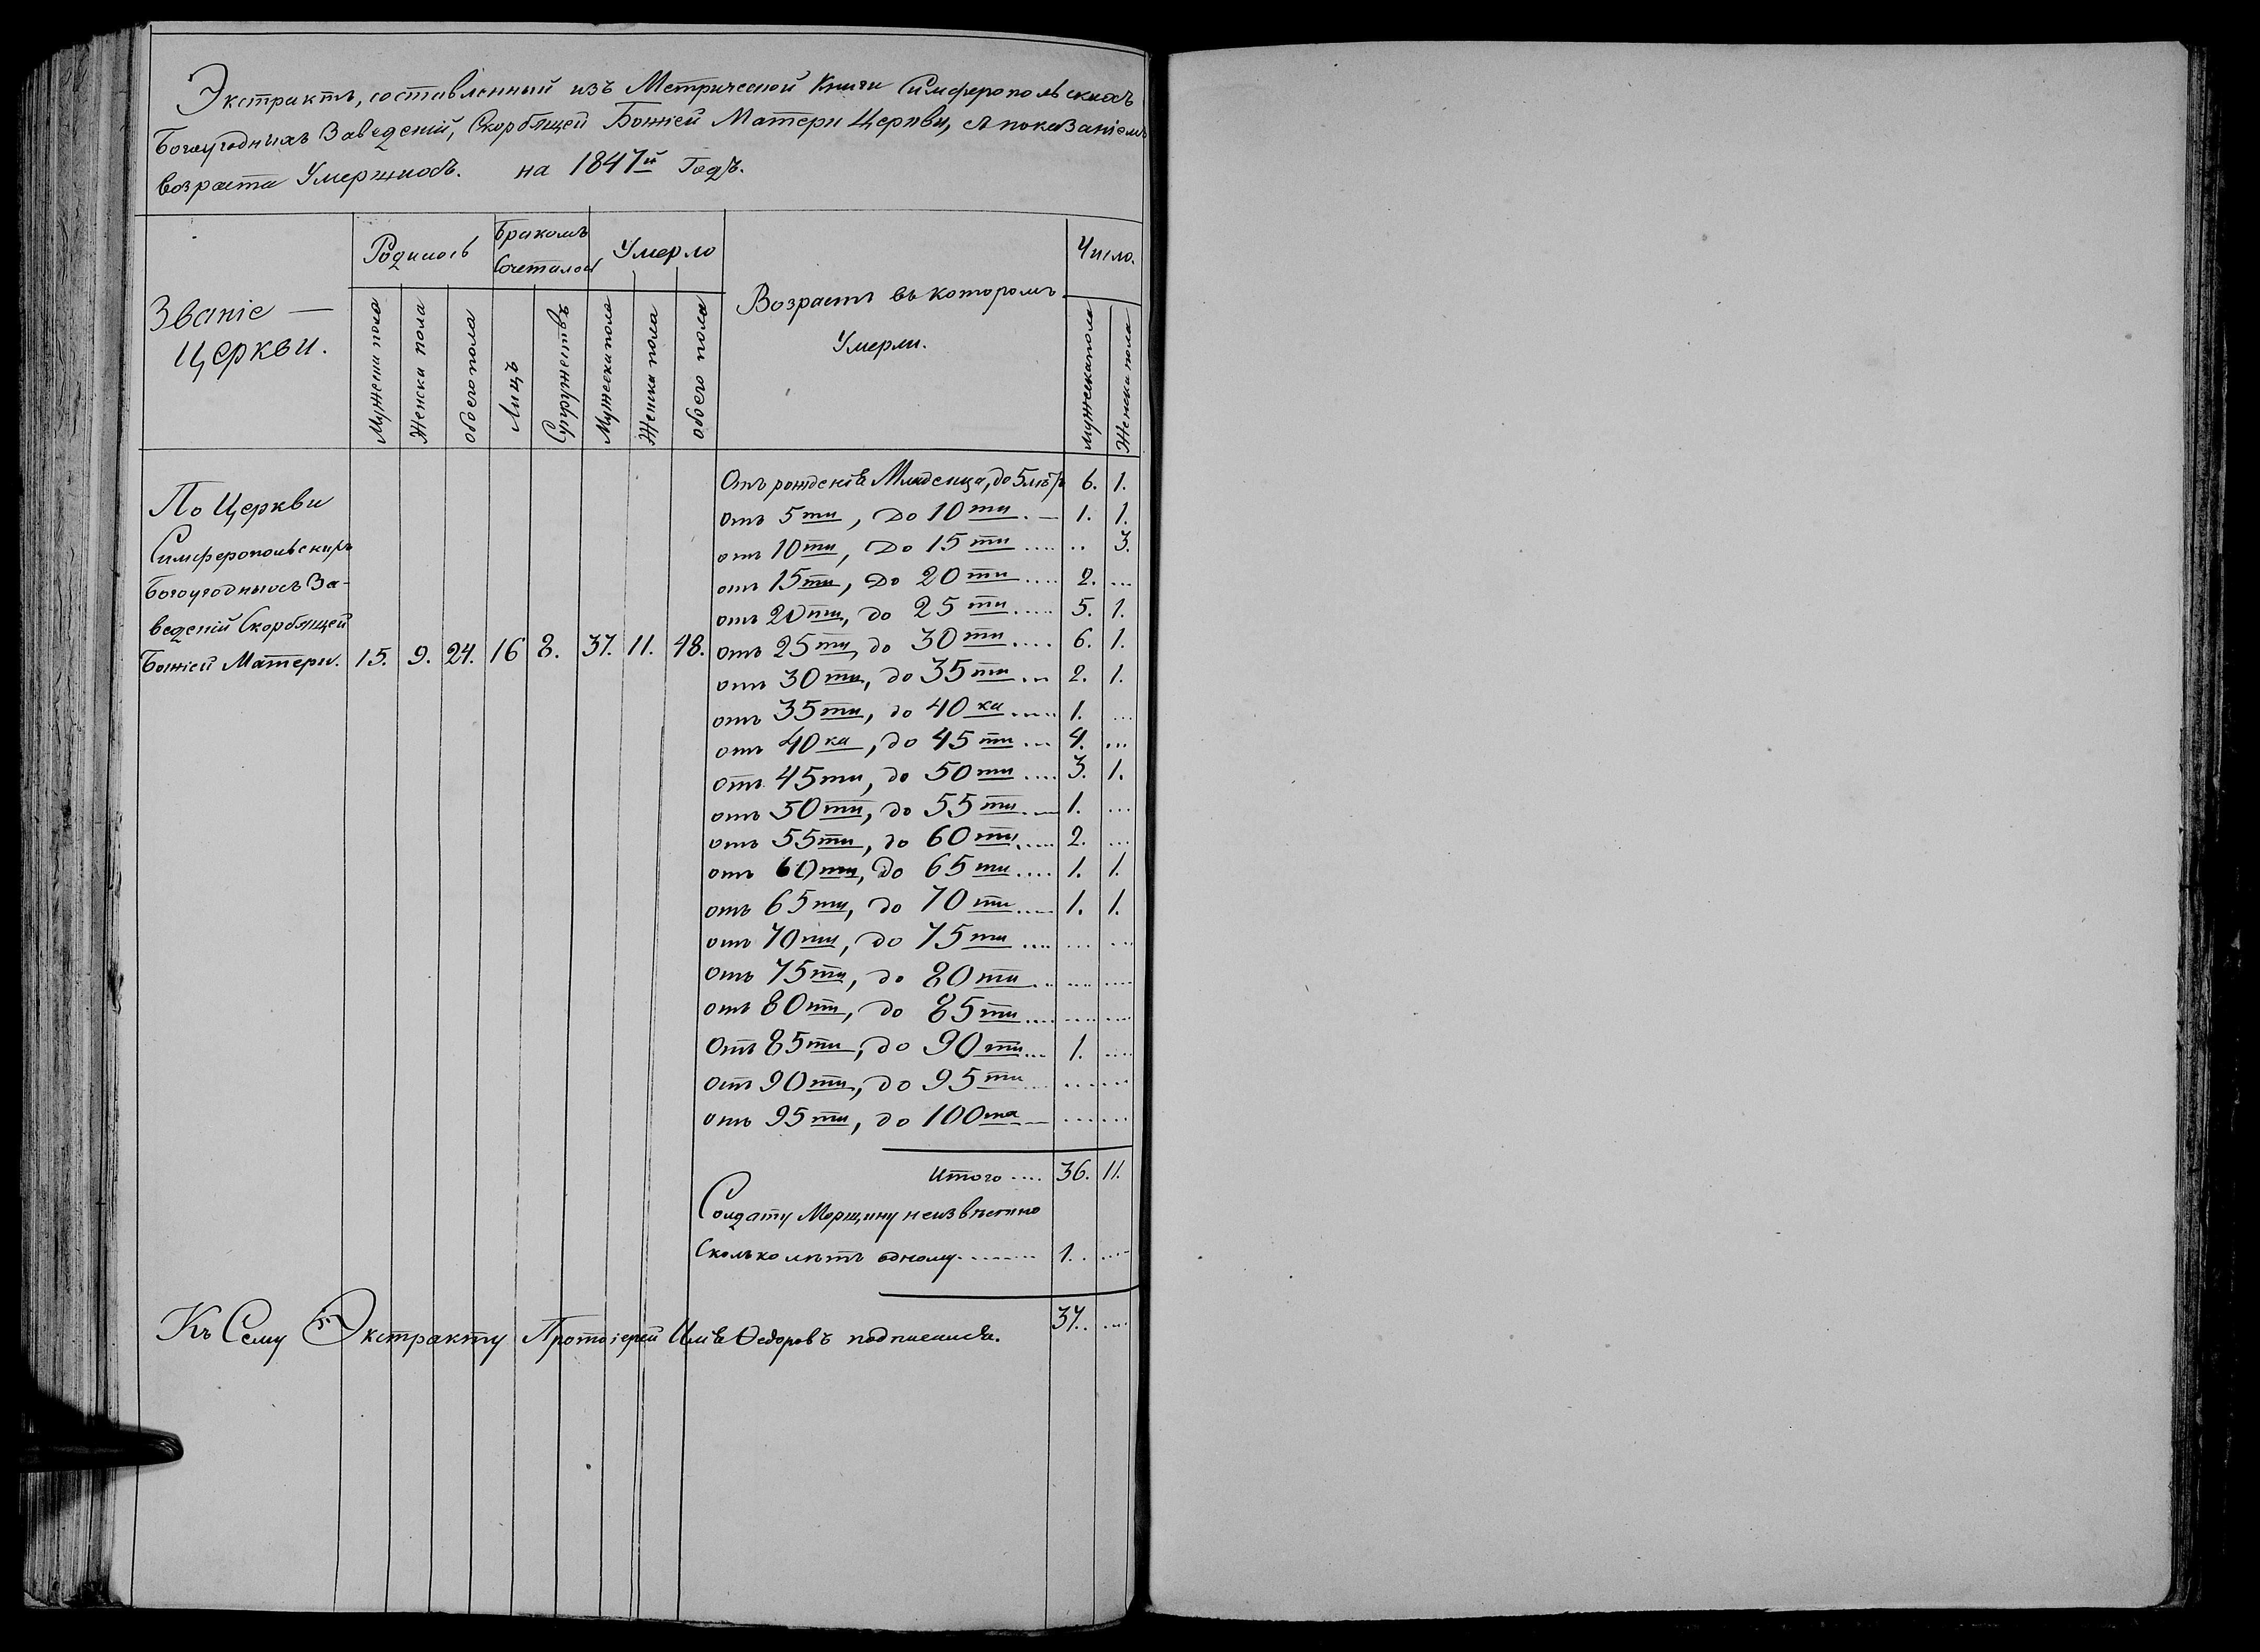 Экстрактъ, составленный изъ Метрической Книги Симферопольскихъ
Богоугодныхъ Заведеній, Скорбящей Божіей Матери Церкви, съ показаніемъ
возраста Умершихъ. на 1847й Годъ.
Званіе —
Церкви.
Родилось
Бракомъ
Сочеталось
Умерло
Возрастъ въ которомъ
Умерли.
Число.
Мужеска пола
Женска пола
обоего пола
Лицъ
Супружествъ
Мужеска пола
Женска пола
обоего пола
мужеска пола
Женска пола
По Церкви
Симферопольскихъ
Богоугодныхъ За-
веденій Скорбящей
Божіей Матери. 15. 9. 24. 16 8. 37. 11. 48.
Отъ рожденія Младенца, до 5 лѣтъ 6. 1.
отъ 5ти, до 10ти. — 1. 1.
отъ 10ти, до 15ти .... .. 3.
отъ 15ти, до 20ти .... 2. ...
отъ 20ти, до 25ти ..... 5. 1.
отъ 25ти, до 30ти .... 6. 1.
отъ 30ти, до 35ти ... 2. 1.
отъ 35ти, до 40ка ..... 1. ...
отъ 40ка, до 45ти ... 4. ...
отъ 45ти, до 50ти .... 3. 1.
отъ 50ти, до 55ти .... 1. ...
отъ 55ти, до 60ти ..... 2. ...
отъ 60ти, до 65ти .... 1. 1.
отъ 65ти, до 70ти .... 1. 1.
отъ 70ти, до 75ти .... ... ...
отъ 75ти, до 80ти .. .... ....
отъ 80ти, до 85ти .... .... ....
Отъ 85ти, до 90ти ... 1. ....
отъ 90ти, до 95ти ... ... ...
отъ 95ти, до 100та — ... ...
Итого .... 36. 11.
Солдату Морщину неизвѣстно
Сколько лѣтъ одному ........ 1. ....
37. ...
Къ Сему Экстракту Протоіерей Илія Ѳедоровъ подписался.